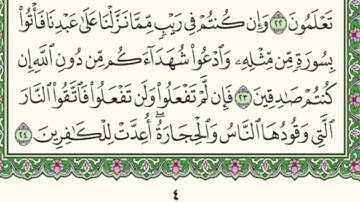 تَعۡلَمُونَ ٢٢ وَإِن كُنتُمۡ فِي رَيۡبٖ مِّمَّا نَزَّلۡنَا عَلَىٰ عَبۡدِنَا فَأۡتُواْ
بِسُورَةٖ مِّن مِّثۡلِهِۦ وَٱدۡعُواْ شُهَدَآءَكُم مِّن دُونِ ٱللَّهِ إِن
كُنتُمۡ صَٰدِقِينَ ٢٣ فَإِن لَّمۡ تَفۡعَلُواْ وَلَن تَفۡعَلُواْ فَٱتَّقُواْ ٱلنَّارَ
ٱلَّتِي وَقُودُهَا ٱلنَّاسُ وَٱلۡحِجَارَةُۖ أُعِدَّتۡ لِلۡكَٰفِرِينَ ٢٤
٤